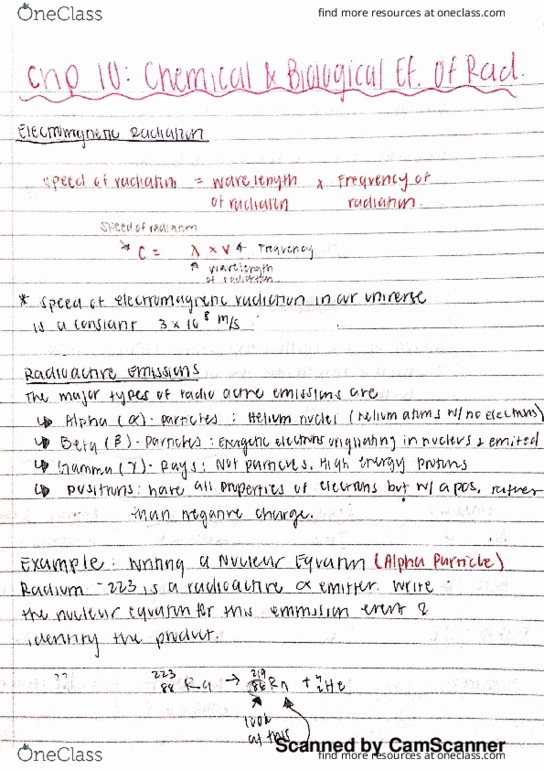 OneClass
find more resources at oneclass.com
Chp 10: Chemical & Biological Ef. Of Rad.
Electromagnetic Radiation
Speed of radiation = wavelength x Frequency of
of radiation radiation.
Speed of radiation
C = λ x v Frequency
wavelength
of radiation
* Speed of electromagnetic radiation in our universe
is a constant 3 x 10⁸ m/s
Radioactive Emissions
The major types of radio active emissions are
Alpha (α) - particles : Helium nuclei (helium atoms w/ no electrons)
Beta (β) - Particles : Energetic electrons originating in nucleus & emitted
Gamma (γ) - Rays : Not particles, High energy protons
positrons : have all properties of electrons but w/ a pos. rather
than negative charge.
Example : Writing a Nuclear Equation (Alpha Particle)
Radium - 223 is a radioactive α emitter. Write
the nuclear equation for this emmission event &
identify the product.
²²³₈₈Ra → ²¹⁹₈₆Rn + ⁴₂He
look
at this
Scanned by CamScanner
OneClass
find more resources at oneclass.com